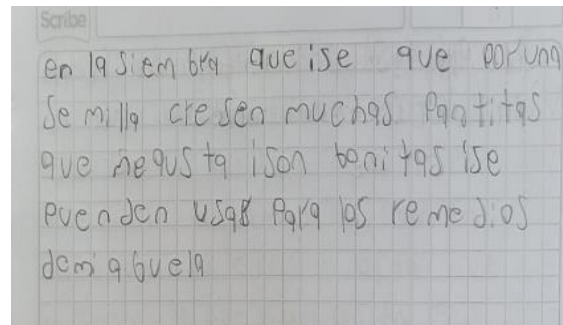 Scribe
en la siem bra que ise que por una
se milla cresen muchas Pantitas
que megus ta ison boni tas ise
puenden usar Para los reme dios
demi abuela